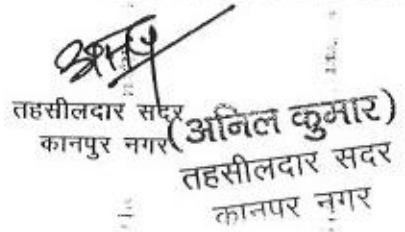 तहसीलदार सदर
कानपुर नगर
(अनिल कुमार)
तहसीलदार सदर
कानपर नगर